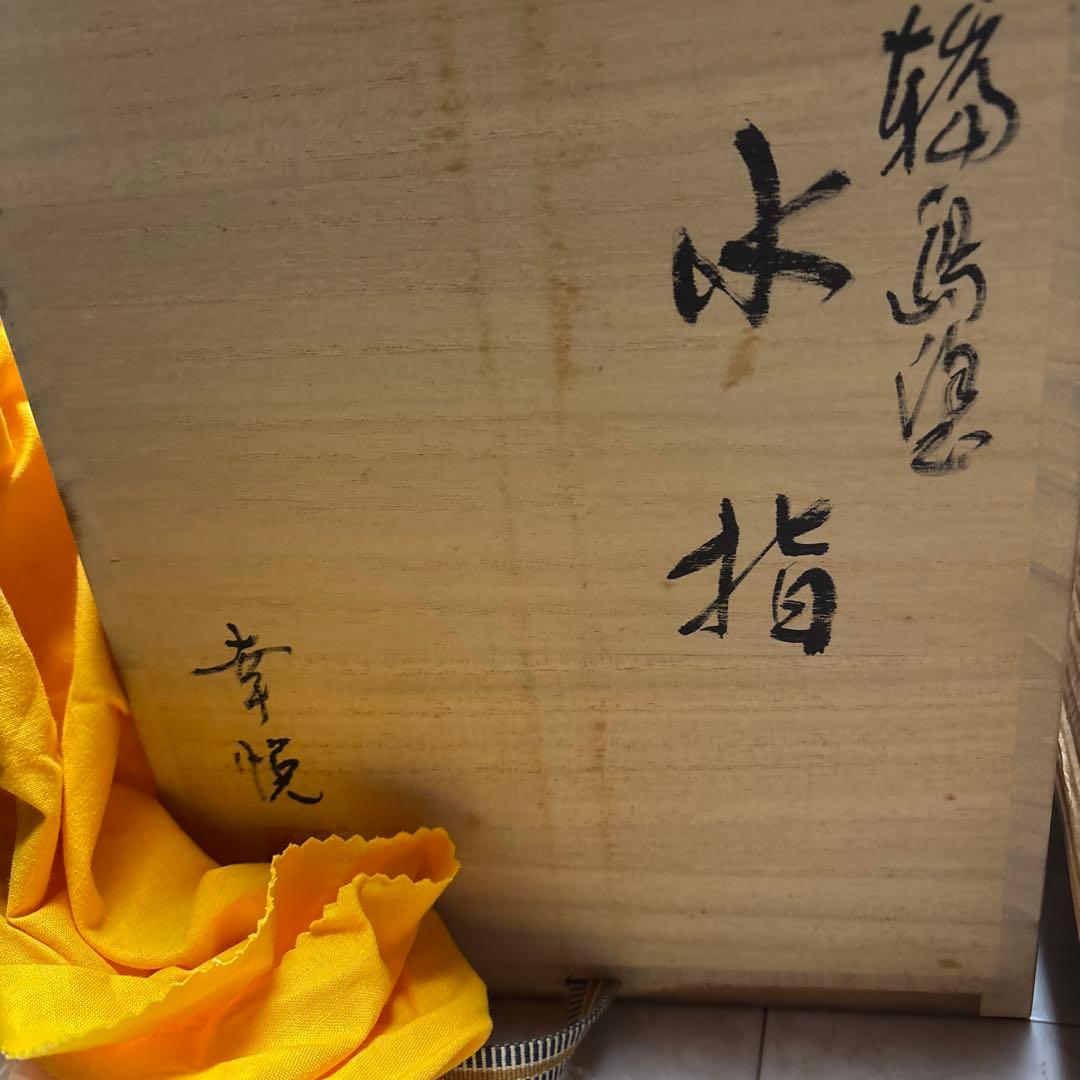 輪島塗
水指
幸悦